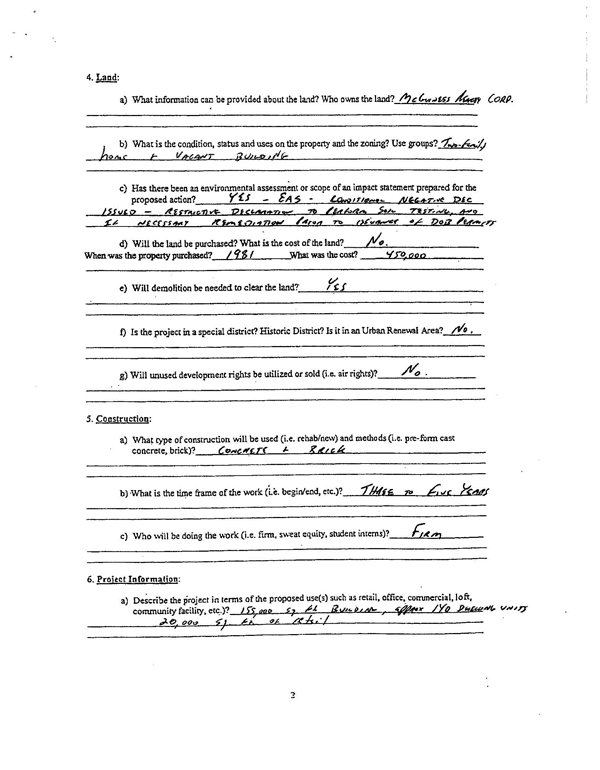 4. Land:
a) What information can be provided about the land? Who owns the land? McGuiness Realty CORP.
b) What is the condition, status and uses on the property and the zoning? Use groups? Two-family
home & VACANT BUILDING
c) Has there been an environmental assessment or scope of an impact statement prepared for the
proposed action? YES - EAS - CONDITIONAL NEGATIVE DEC
ISSUED - RESTRICTIVE DECLARATION TO PERFORM SOIL TESTING, AND
IF NECESSARY REMEDIATION PRIOR TO ISSUANCE OF DOB PERMITS
d) Will the land be purchased? What is the cost of the land? No.
When was the property purchased? 1981 What was the cost? 450,000
e) Will demolition be needed to clear the land? YES
f) Is the project in a special district? Historic District? Is it in an Urban Renewal Area? No.
g) Will unused development rights be utilized or sold (i.e. air rights)? No.
5. Construction:
a) What type of construction will be used (i.e. rehab/new) and methods (i.e. pre-form cast
concrete, brick)? CONCRETE & BRICK
b) What is the time frame of the work (i.e. begin/end, etc.)? THREE TO FIVE YEARS
c) Who will be doing the work (i.e. firm, sweat equity, student interns)? FIRM
6. Project Information:
a) Describe the project in terms of the proposed use(s) such as retail, office, commercial, loft,
community facility, etc.)? 155,000 sq ft BUILDING, approx 140 DWELLING UNITS
20,000 sq. ft. of retail
2